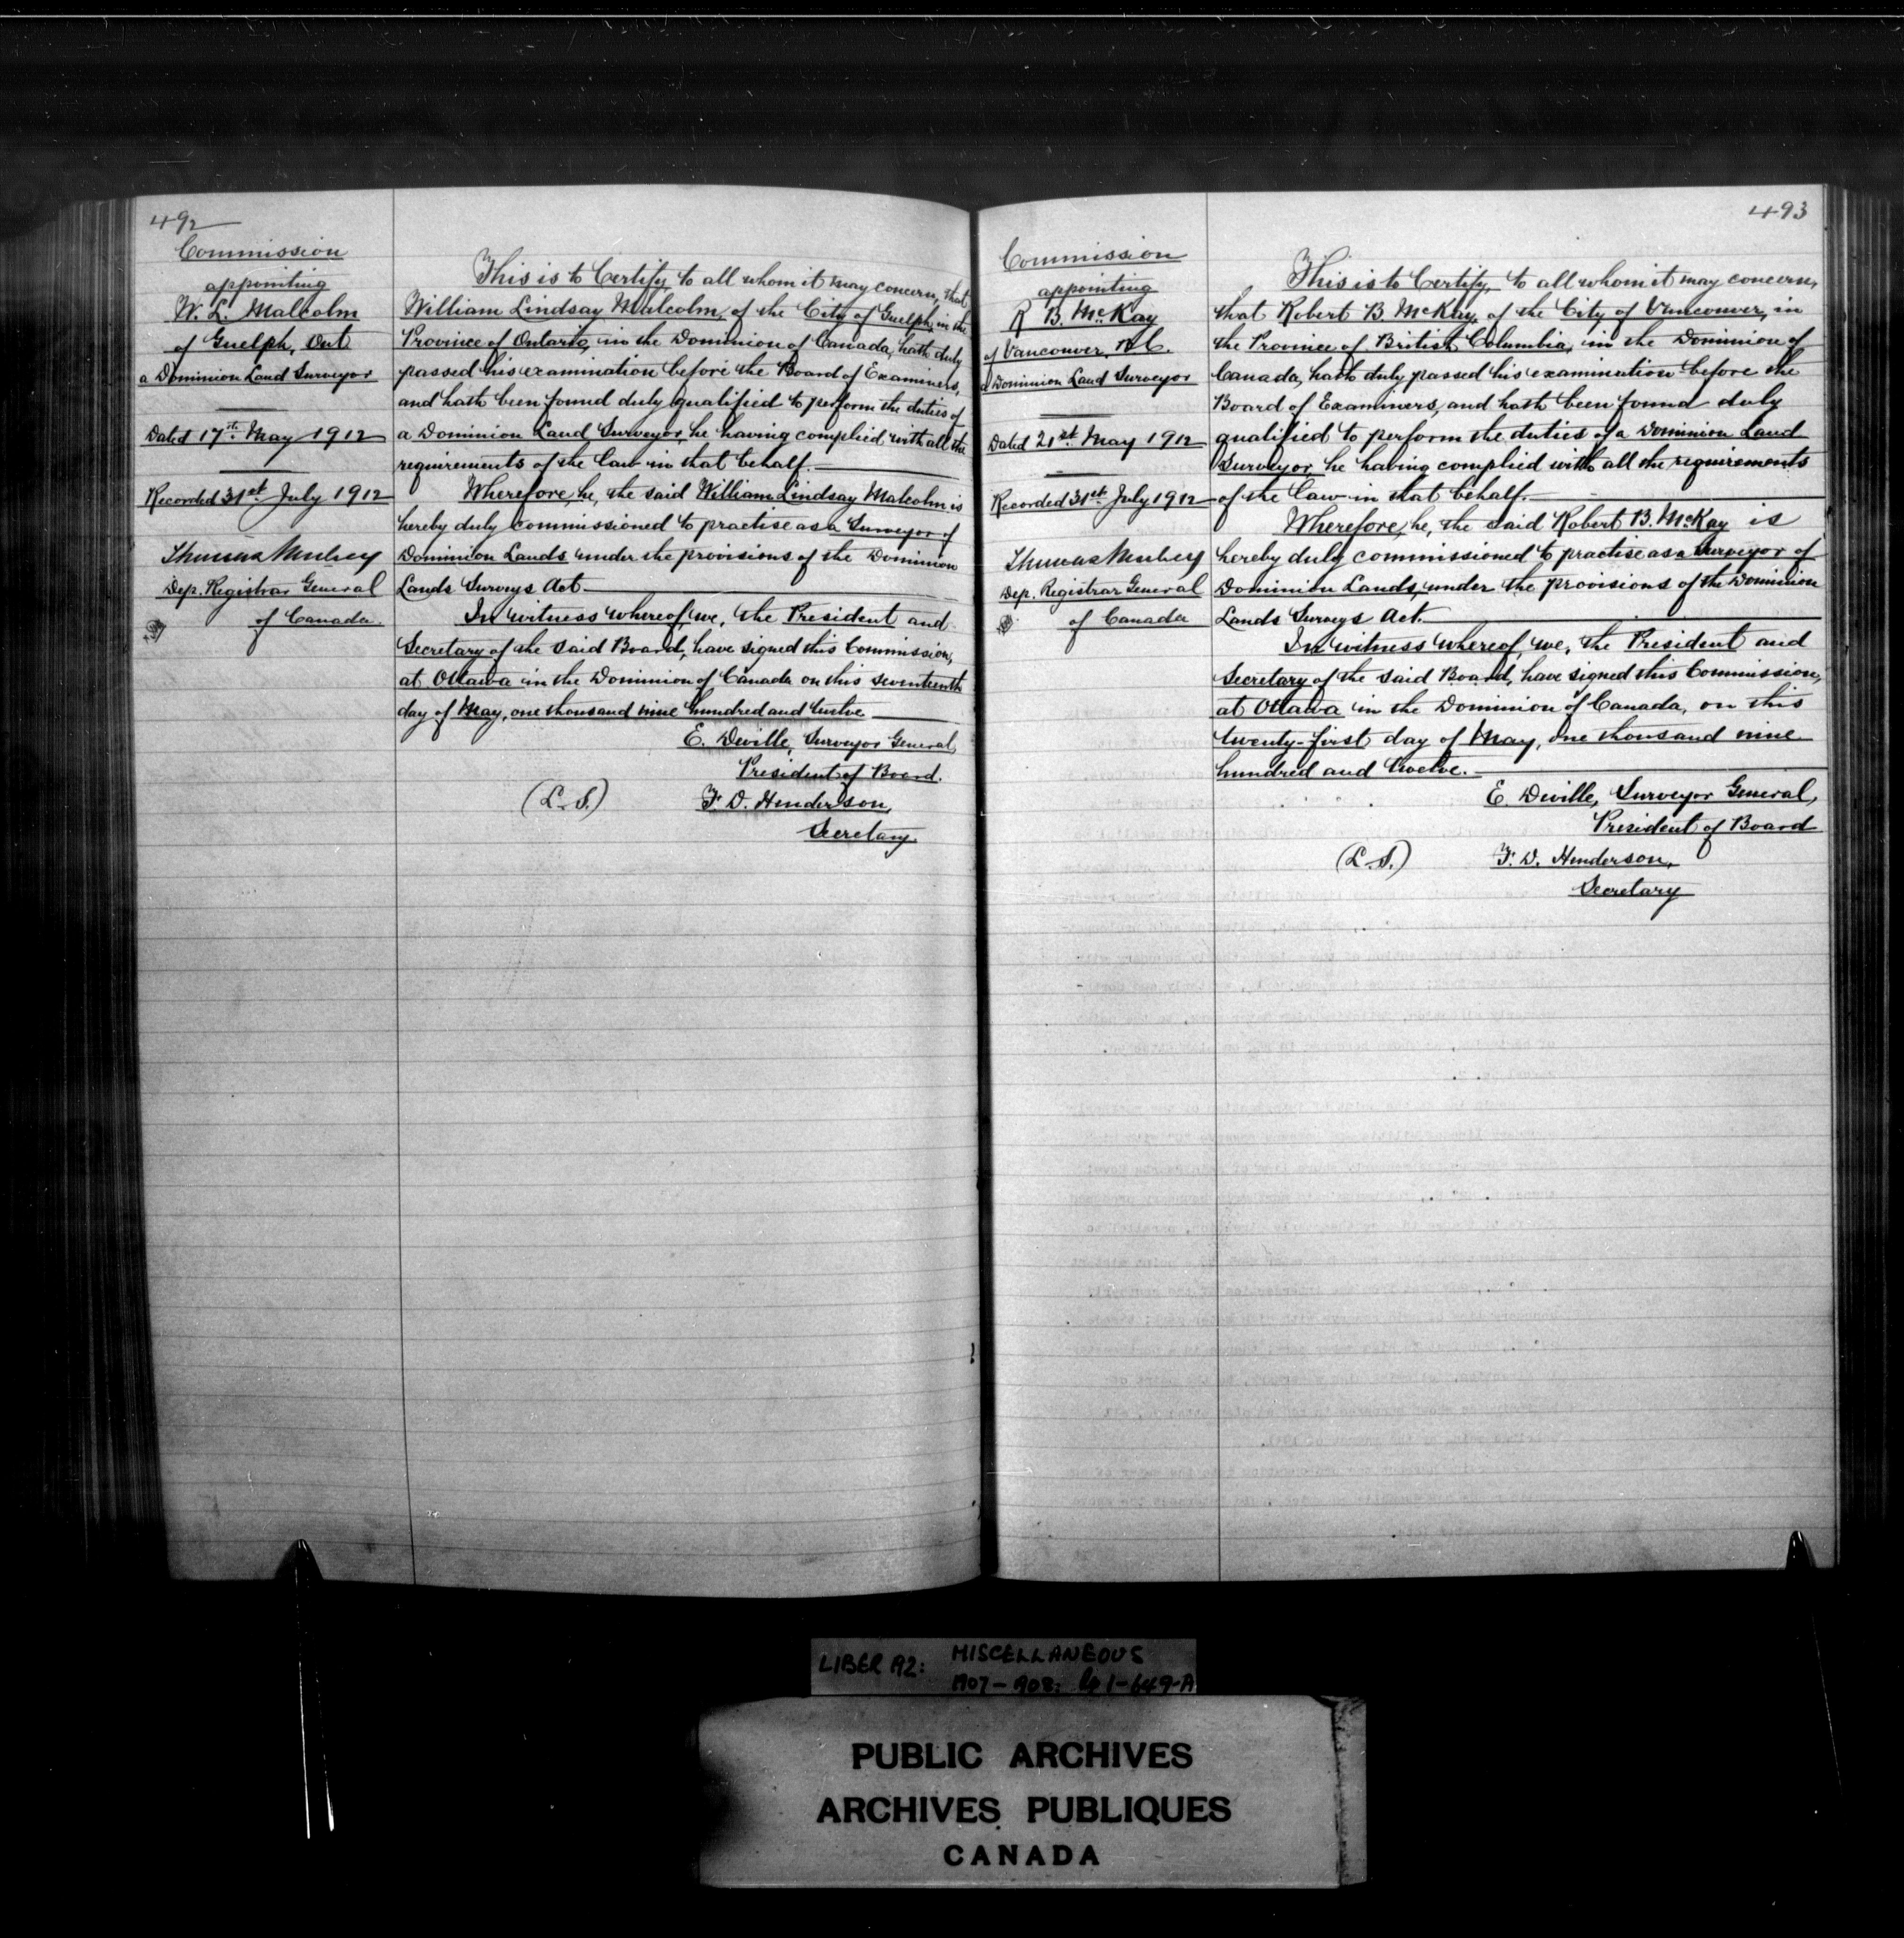 492
Commission
appointing
W. L. Malcolm
of Guelph, Ont
a Dominion Land Surveyor
Dated 17th May 1912
Recorded 31st July 1912
Thomas Mulvey
Dep. Registrar General
of Canada.
This is to Certify, to all whom it may concern, that
William Lindsay Malcolm, of the City of Guelph in the
Province of Ontario, in the Dominion of Canada, hath duly
passed his examination before the Board of Examiners,
and hath been found duly qualified to perform the duties of
a Dominion Land Surveyor, he having complied with all the
requirements of the law in that behalf.
Wherefore, he, the said William Lindsay Malcolm is
hereby duly commissioned to practise as a Surveyor of
Dominion Lands under the provisions of the Dominion
Lands Surveys Act
In witness whereof, we, the President and
Secretary of the said Board, have signed this Commission,
at Ottawa in the Dominion of Canada on this seventeenth
day of May, one thousand nine hundred and twelve
E. Deville, Surveyor General,
President of Board.
(L.S.) F. D. Henderson,
Secretary.
493
Commission
appointing
R B. McKay
of Vancouver, B.C.
a Dominion Land Surveyor
Dated 21st May 1912
Recorded 31st July 1912
Thomas Mulvey
Dep. Registrar General
of Canada
This is to Certify, to all whom it may concern,
that Robert B. McKay, of the City of Vancouver, in
the Province of British Columbia, in the Dominion of
Canada, hath duly passed his examination before the
Board of Examiners, and hath been found duly
qualified to perform the duties of a Dominion Land
Surveyor, he having complied with all the requirements
of the law in that behalf.
Wherefore, he, the said Robert B. McKay is
hereby duly commissioned to practise as a Surveyor of
Dominion Lands, under the provisions of the Dominion
Lands Surveys Act.
In witness whereof, we, the President and
Secretary of the said Board, have signed this Commission,
at Ottawa in the Dominion of Canada, on this
twenty-first day of May, one thousand nine
hundred and twelve.
E. Deville, Surveyor General,
President of Board
(L.S.) F. D. Henderson,
Secretary
LIBER A2: MISCELLANEOUS
1907-1908:
PUBLIC ARCHIVES
ARCHIVES PUBLIQUES
CANADA